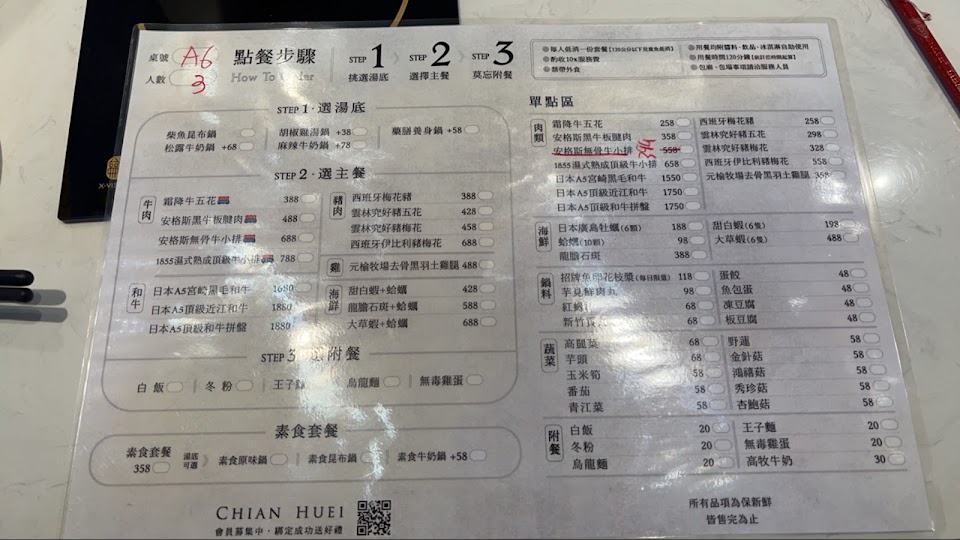 桌號 A6
人數 3
點餐步驟
How To Order
STEP 1 挑選湯底
STEP 2 選擇主餐
STEP 3 莫忘附餐
每人低消一份套餐
酌收10%服務費
禁帶外食
用餐均附醬料、飲品、冰淇淋自助使用
用餐時間120分鐘
包廂、包場事項請洽服務人員
STEP 1 · 選湯底
柴魚昆布鍋
胡椒雞湯鍋 +38
藥膳養身鍋 +58
松露牛奶鍋 +68
麻辣牛奶鍋 +78
STEP 2 · 選主餐
牛肉
霜降牛五花 388
安格斯黑牛板腱肉 488
安格斯無骨牛小排 688
1855濕式熟成頂級牛小排 788
和牛
日本A5宮崎黑毛和牛 1680
日本A5頂級近江和牛 1880
日本A5頂級和牛拼盤 1880
豬肉
西班牙梅花豬 388
雲林究好豬五花 428
雲林究好豬梅花 458
西班牙伊比利豬梅花 688
雞
元榆牧場去骨黑羽土雞腿 488
海鮮
甜白蝦+蛤蠣 428
龍膽石斑+蛤蠣 588
大草蝦+蛤蠣 688
STEP 3 選附餐
白飯
冬粉
王子麵
烏龍麵
無毒雞蛋
素食套餐
素食套餐 358
湯底可選
素食原味鍋
素食昆布鍋
素食牛奶鍋 +58
CHIAN HUEI
會員募集中 · 綁定成功送好禮
單點區
肉類
霜降牛五花 258
安格斯黑牛板腱肉 358
安格斯無骨牛小排 558
1855濕式熟成頂級牛小排 658
日本A5宮崎黑毛和牛 1550
日本A5頂級近江和牛 1750
日本A5頂級和牛拼盤 1750
西班牙梅花豬 258
雲林究好豬五花 298
雲林究好豬梅花 328
西班牙伊比利豬梅花 558
元榆牧場去骨黑羽土雞腿 358
海鮮
日本廣島牡蠣(6顆) 188
蛤蠣(10顆) 98
龍膽石斑 388
甜白蝦(6隻) 198
大草蝦(6隻) 488
鍋料
招牌魚卵花枝漿(每日限量) 118
芋見鮮肉丸 98
68
新竹貢丸 68
蛋餃 48
魚包蛋 48
凍豆腐 48
板豆腐 48
蔬菜
高麗菜 68
芋頭 68
玉米筍 58
番茄 58
青江菜 58
野蓮 58
金針菇 58
鴻禧菇 58
秀珍菇 58
杏鮑菇 58
附餐
白飯 20
冬粉 20
烏龍麵 20
王子麵 20
無毒雞蛋 20
高牧牛奶 30
所有品項為保新鮮
皆售完為止